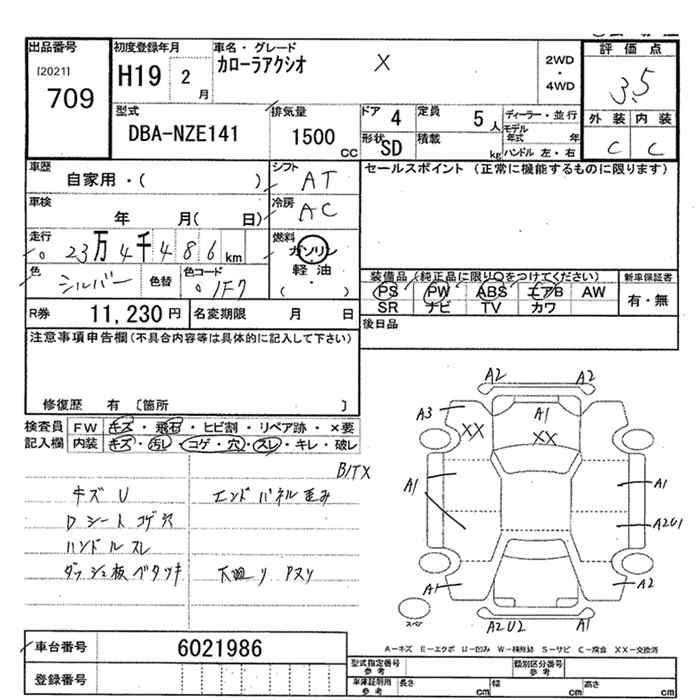 出品番号 初度登録年月 車名・グレード 評価点
[2021] 709 H19 2月 カローラアクシオ X 2WD・4WD 3.5
型式 排気量 ドア 4 定員 5人 ディーラー・並行 外装 内装
DBA-NZE141 1500cc 形状 SD 積載 kg モデル年式 年 ハンドル 左・右 C C
車歴 シフト セールスポイント (正常に機能するものに限ります)
自家用・( ) AT
車検 冷房
年 月( 日) AC
走行 燃料
23万4千486km ガソリン
色 シルバー 色替 色コード 1F7 軽油 ( ・ )
装備品 (純正品に限り○をつけてください) 新車保証書
PS PW ABS エアB AW 有・無
SR ナビ TV カワ
R券 11,230円 名変期限 月 日 後日品
注意事項申告欄(不具合内容等は具体的に記入して下さい)
修復歴 有 〔箇所 〕
検査員 FW キズ・飛石・ヒビ割・リペア跡・×要
記入欄 内装 キズ・汚レ・コゲ・穴・スレ・キレ・破レ
B/TX
キズ U エンドパネル歪み
Dシート コゲ穴
ハンドルスレ
ダッシュ板ベタツキ 下廻り サスリ
A2 A2
A3 A1
XX XX
A1 A1
A2U1
A1 A2
スペア A2U2 A1
車台番号 6021986
A−キズ E−エクボ U−凹み W−補修跡 S−サビ C−腐食 XX−交換済
登録番号 型式指定番号 参考 類別区分番号 参考
車庫証明用 参考 長さ cm 幅 cm 高さ cm